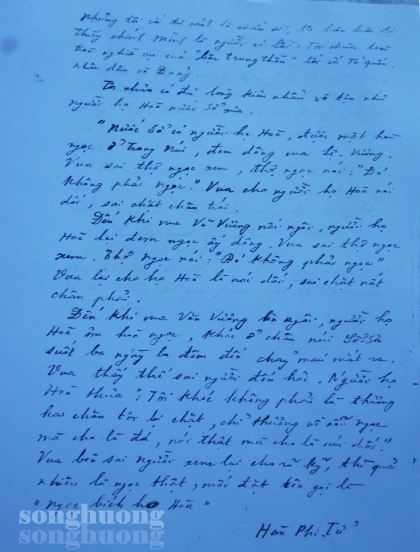 Không tôi và tử
thấy chính mình là người có lỗi, Tôi chưa
tròn nghĩa vụ của "bầy trung thần" đối với Tổ quốc,
nhân dân và Đảng.
Tôi chưa có đủ lòng kiên nhẫn vô tận như
người họ Hoà nước Sở xưa.
"Nước Sở có người họ Hoà, được một hòn
ngọc ở trong núi, đem dâng vua Lệ Vương.
Vua sai thợ ngọc xem, thợ ngọc nói: "Đá
không phải ngọc." Vua cho người họ Hoà nói
dối, sai chặt chân trái.
Đến khi vua Vũ Vương nối ngôi, người họ
Hoà lại đem ngọc ấy dâng. Vua sai thợ ngọc
xem. Thợ ngọc nói: "Đá không phải ngọc"
Vua lại cho họ Hoà là nói dối, sai chặt nốt
chân phải.
Đến khi vua Văn Vương lên ngôi, người họ
Hoà ôm hòn ngọc, khóc ở chân núi Sở Sơn
suốt ba ngày ba đêm đến chảy máu mắt ra.
Vua thấy thế sai người đến hỏi. Người họ
Hoà thưa: Tôi khóc không phải là thương
hai chân tôi bị chặt, chỉ thương vì nỗi ngọc
mà cho là đá, nói thật mà cho là nói dối."
Vua bèn sai người xem lại cho rõ kỹ, thì quả
nhiên là ngọc thật, mới đặt tên gọi là
"Ngọc bích họ Hoà"
Hàn Phi Tử
songhuong
songhuong